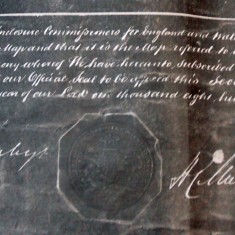 nclosure Commissioners for England and Wal
Map and that it is the Map referred to i
ony whereof We have hereunto subscribed
our Official Seal to be affixed this Seco
year of our Lord one thousand eight hu